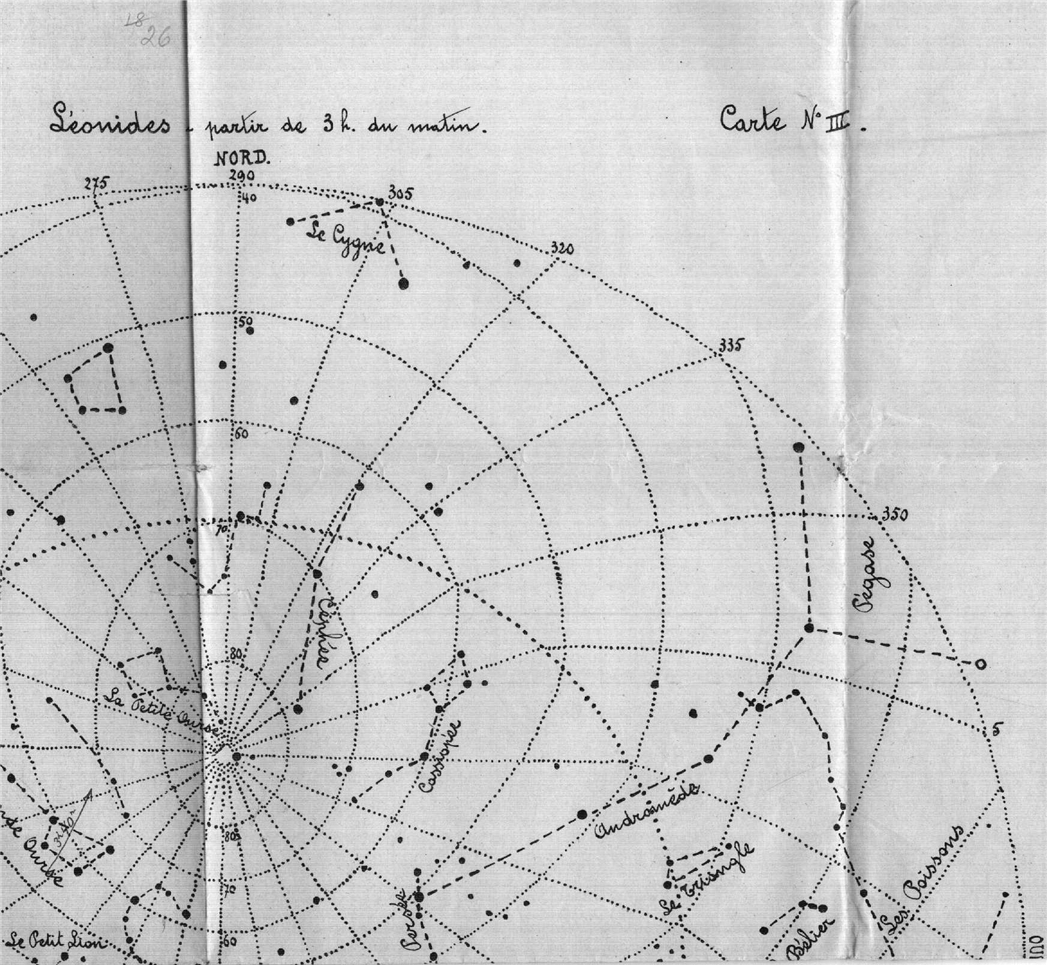 18
26
Léonides - partir de 3 h. du matin.
Carte N° III.
NORD.
275
290
305
40
Le Cygne
320
50
335
60
350
70
Pégase
Céphée
80
La Petite Ourse
5
Cassiopée
Andromède
Ourse
3h40m
80
Le Triangle
Les Poissons
70
Persée
Bélier
Le Petit Lion
60